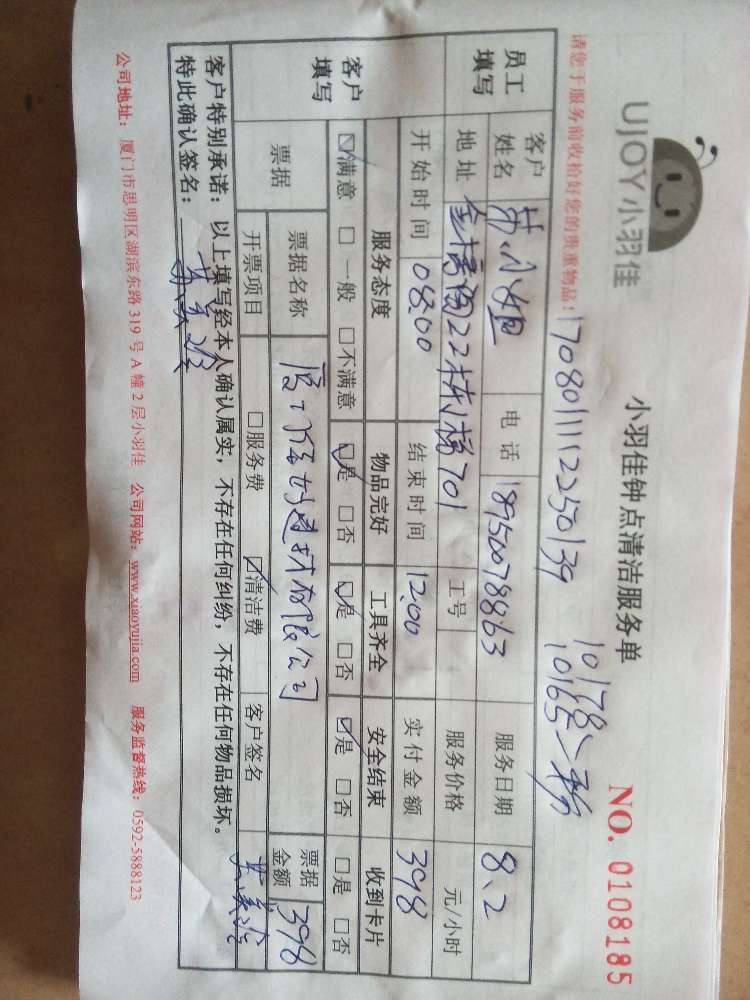 UJOY小羽佳
小羽佳钟点清洁服务单
NO. 0108185
请您于服务前收拾好您的贵重物品!
1708011112250139
10178
10165
员工填写 客户姓名 小姐 电话 18950078863 服务日期 8.2
地址 金桥园22栋梯701 工号 服务价格 元/小时
开始时间 08:00 结束时间 12:00 实付金额 398
客户填写 服务态度 物品完好 工具齐全 安全结束 收到卡片
☑满意 □一般 □不满意 ☑是 □否 ☑是 □否 ☑是 □否 □是 □否
票据 票据名称 建材有限公司 票据金额 398
开票项目 □服务费 ☑清洁费 客户签名
客户特别承诺：以上填写经本人确认属实，不存在任何纠纷，不存在任何物品损坏。
特此确认签名：
公司地址：厦门市思明区湖滨东路319号A幢2层小羽佳 公司网站：www.xiaoyujia.com 服务监督热线：0592-5888123